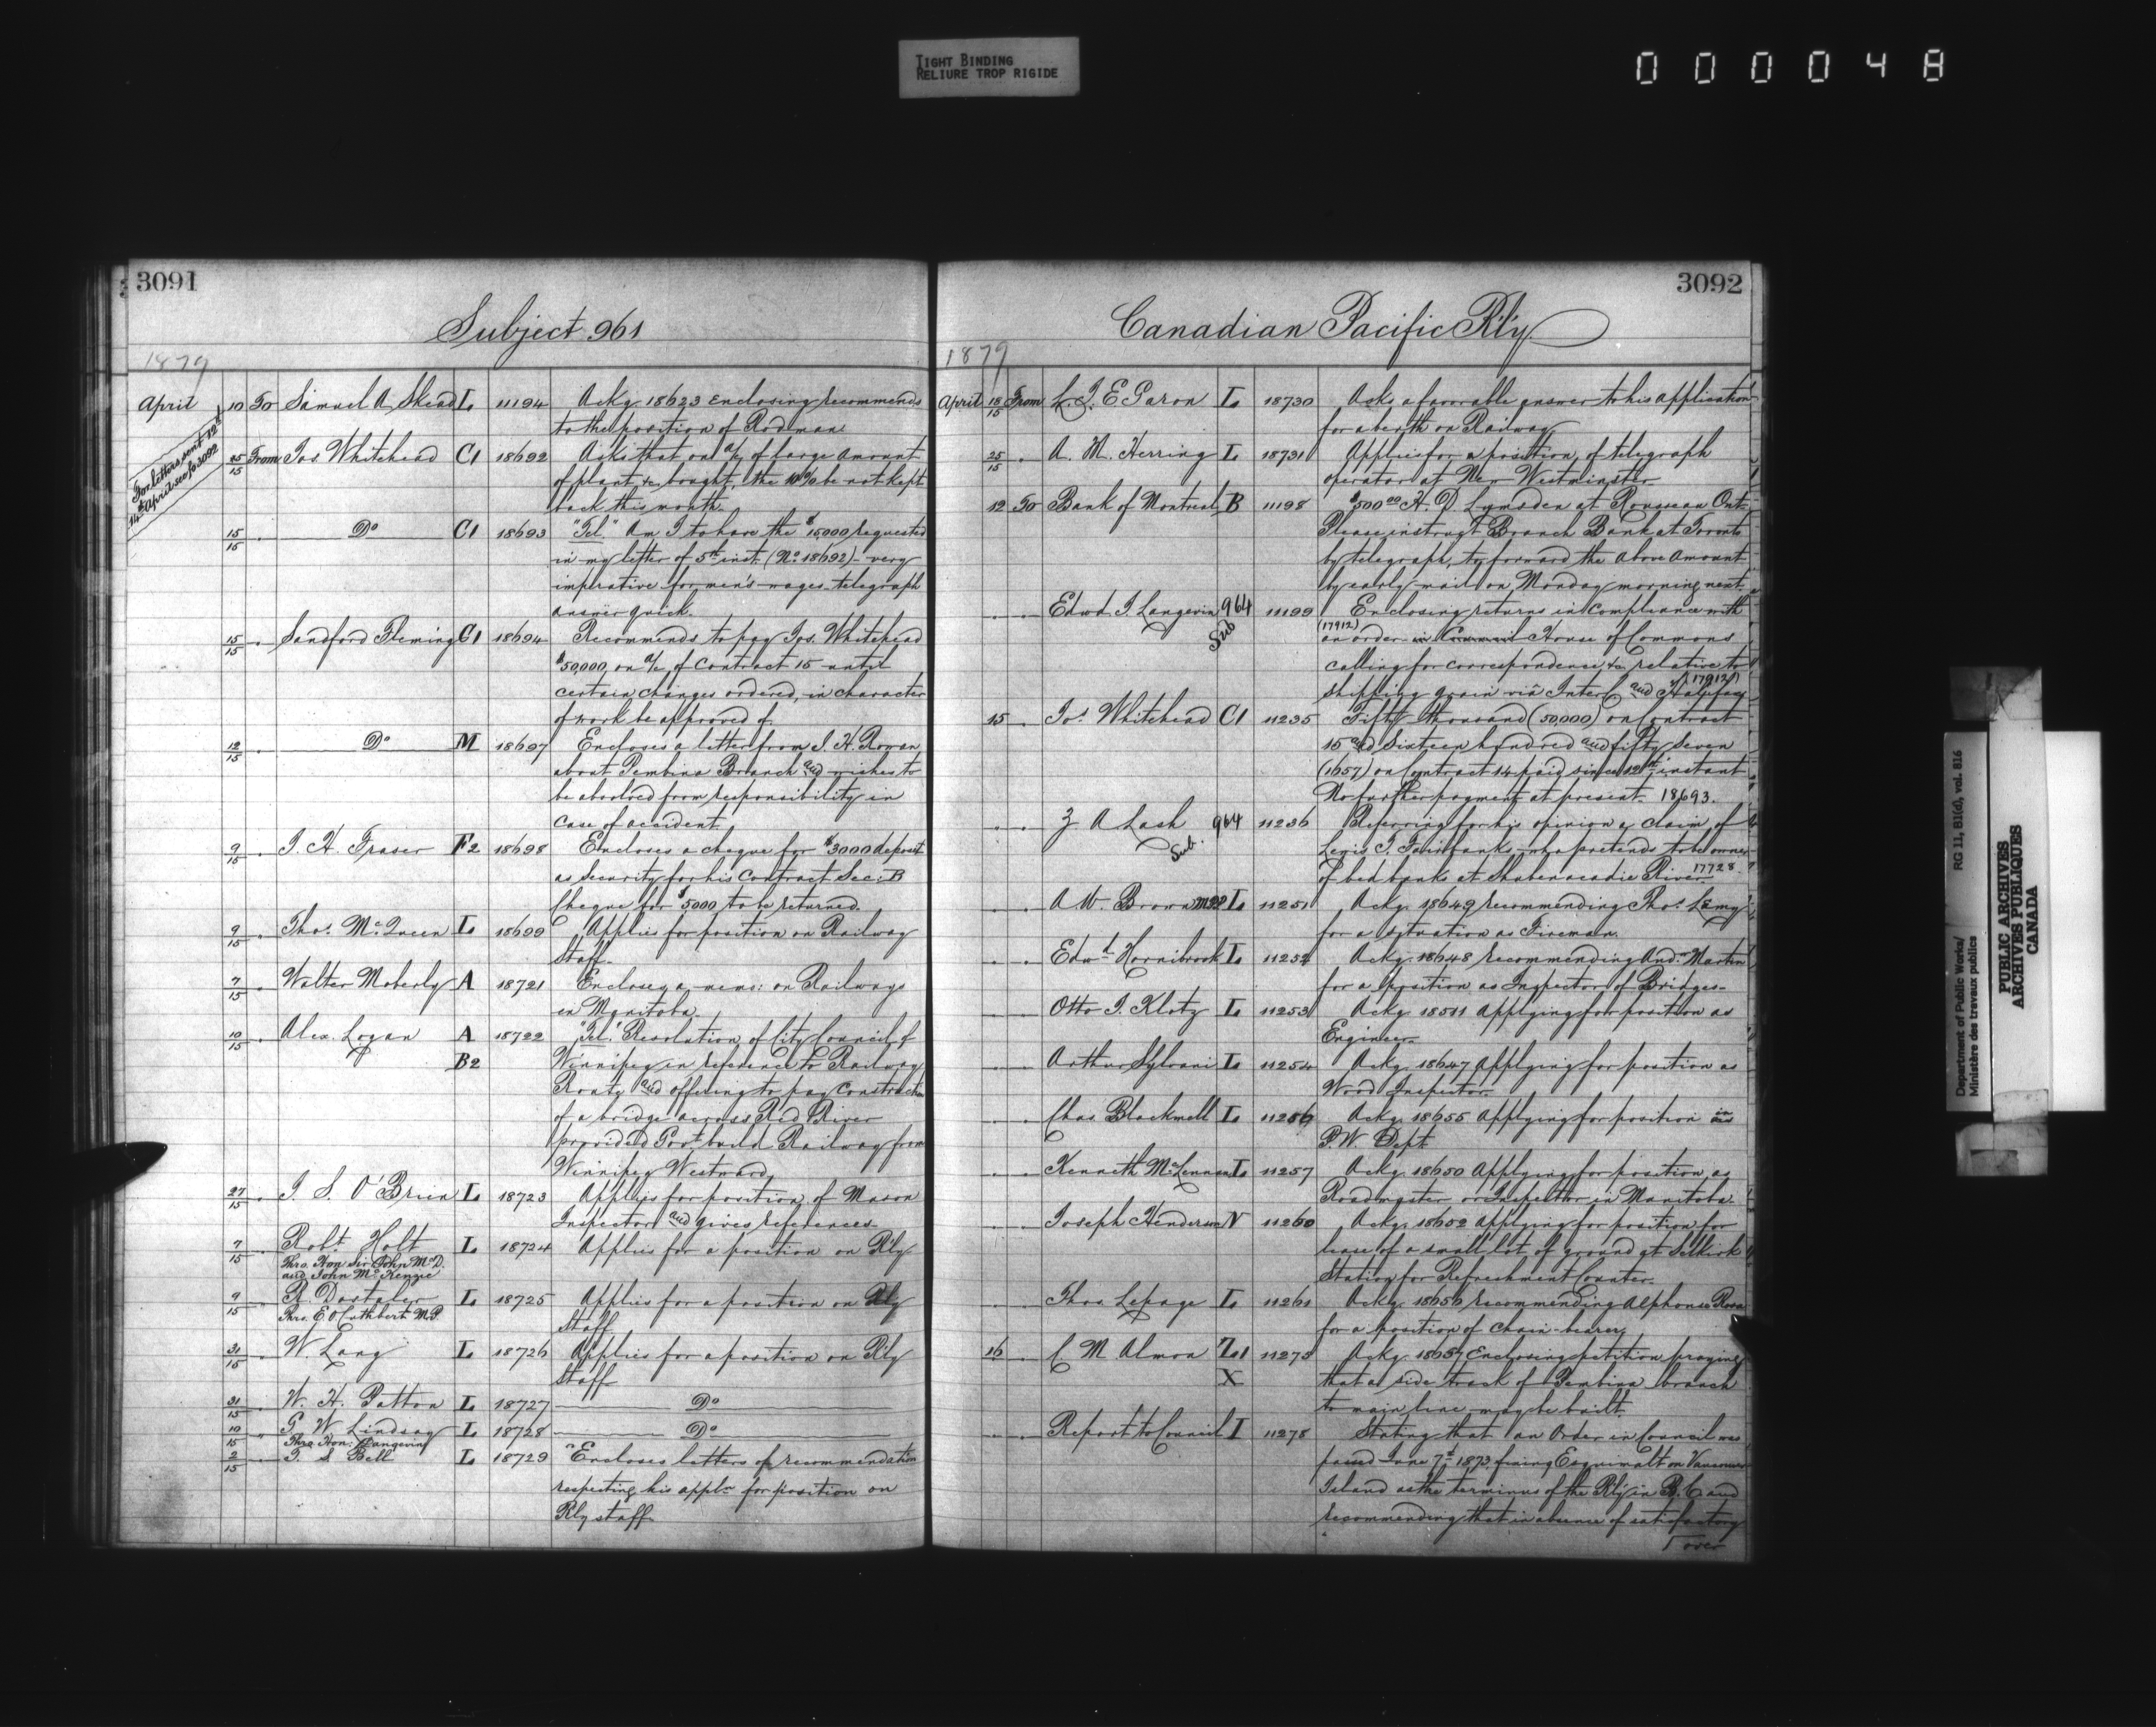 TIGHT BINDING
RELIURE TROP RIGIDE
000048
3091
Subject 961
1879
April 10 To Samuel A Skead L 11194 Ackg. 18623 enclosing recommends
to the position of Rodman
For letters sent 12th &
14th April see fo 3092
25/15 From Jos. Whitehead C1 18692 Asks that on a/c of large amount
of plant &c bought, the 10% be not kept
back this month.
15/15 " Do C1 18693 "Tel" Am I to have the $15000 requested
in my letter of 5th inst. (No 18692) - very
imperative for men's wages - telegraph
answer quick.
15/15 " Sandford Fleming C1 18694 Recommends to pay Jos. Whitehead
$50,000 on a/c of Contract 15 until
certain changes ordered, in character
of work be approved of
12/15 " Do M 18697 Encloses a letter from J. H. Rowan
about Pembina Branch and wishes to
be absolved from responsibility in
case of accident
9/15 " J. H. Fraser F2 18698 Encloses a cheque for $3000 deposit
as security for his Contract Sec: B
Cheque for $5000 to be returned.
9/15 " Thos. McQueen L 18699 Applies for position on Railway
Staff.
7/15 " Walter Moberly A 18721 Encloses a memo: on Railways
in Manitoba.
10/15 " Alex. Logan A 18722 "Tel." Resolution of City Council of
B2 Winnipeg in reference to Railway
Route and offering to pay construction
of a bridge across Red River
provided Govt build Railway from
Winnipeg Westward,
27/15 " J. S. O'Brien L 18723 Applies for position of Mason
Inspector and gives references-
7/15 " Robt. Holt L 18724 Applies for a position on R'ly
Thro. Hon. Sir John McD.
and John McKenzie
9/15 " R. Dostaler L 18725 Applies for a position on Rly
Thro. E. O. Cuthbert M.P. Staff
31/15 " W. Lang L 18726 Applies for a position on R'ly
Staff
31/15 " W. H. Patton L 18727 Do
10/15 " G W Lindsay L 18728 Do
Thro Hon: Langevin
2/15 " T. S. Bell L 18729 Encloses letters of recommendation
respecting his appln for position on
Rly staff
3092
Canadian Pacific R'l'y.
1879
April 18/15 From L. J. E Garon L 18730 Asks a favorable answer to his application
for a berth on Railway
25/15 " A. M. Herring L 18731 Applies for a position, of telegraph
operator at New Westminster
12 To Bank of Montreal B 11198 $500.00 H. D Lumsden at Rousseau Ont.
Please instruct Branch Bank at Toronto
by telegraph, to forward the above amount
by early mail on Monday morning next.
" " Edwd J. Langevin 964 Sub 11199 Enclosing returns in compliance with
(17912) an order in Council House of Commons
calling for correspondence &c, relative to
shipping grain via Inter C and Halifax (17912)
15 " Jos. Whitehead C1 11235 Fifty thousand (50,000) on Contract
15 and sixteen hundred and fifty seven
(1657) on Contract 14 paid since 12th instant
No further payment at present. 18693.
" " Z A Lash 964 Sub. 11236 Referring for his opinion a claim of
Lewis P. Fairbanks who pretends to be owner
of bed banks at Shubenacadie River 17728
" " A W. Brown L 11251 Ackg. 18649 recommending Thos. Lamy
for a situation as Fireman.
" " Edwd Hornibrook L 11252 Ackg. 18648 recommending Andw Martin
for a position as Inspector of Bridges-
" " Otto J. Klotz L 11253 Ackg. 18511 applying for position as
Engineer-
" " Arthur Sylvain L 11254 Ackg. 18647 applying for position as
Wood Inspector.
" " Chas Blackwell L 11256 Ackg. 18655 applying for position in
P.W. Dept
" " Kenneth McLennan L 11257 Ackg. 18650 Applying for position as
Roadmaster or Inspector in Manitoba.
" " Joseph Henderson N 11260 Ackg. 18652 applying for position for
lease of a small lot of ground at Selkirk
Station for Refreshment Counter-
" " Thos. Lepage L 11261 Ackg. 18656 recommending Alphonse Ross
for a position of chain-bearer,
16 " C. M Almon Z1 11275 Ackg. 18657 Enclosing petition praying
X that a side track of Pembina branch
to main line may be built.
" " Report to Council I 11278 Stating that an Order in Council was
passed June 7th 1873, fixing Esquimalt on Vancouver
Island as the terminus of the Rly in B. C and
recommending that in absence of satisfactory
over
Department of Public Works/ RG 11, B1(d), vol. 816
Ministère des travaux publics
PUBLIC ARCHIVES
ARCHIVES PUBLIQUES
CANADA